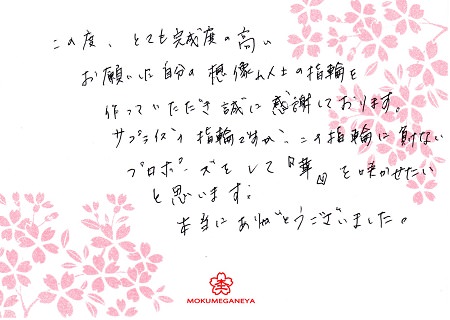 この度、とても完成度の高い
お願いした自分の想像以上の指輪を
作っていただき誠に感謝しております。
サプライズの指輪ですが、この指輪に負けない
プロポーズをして『華』を咲かせたい
と思います。
本当にありがとうございました。
MOKUMEGANEYA